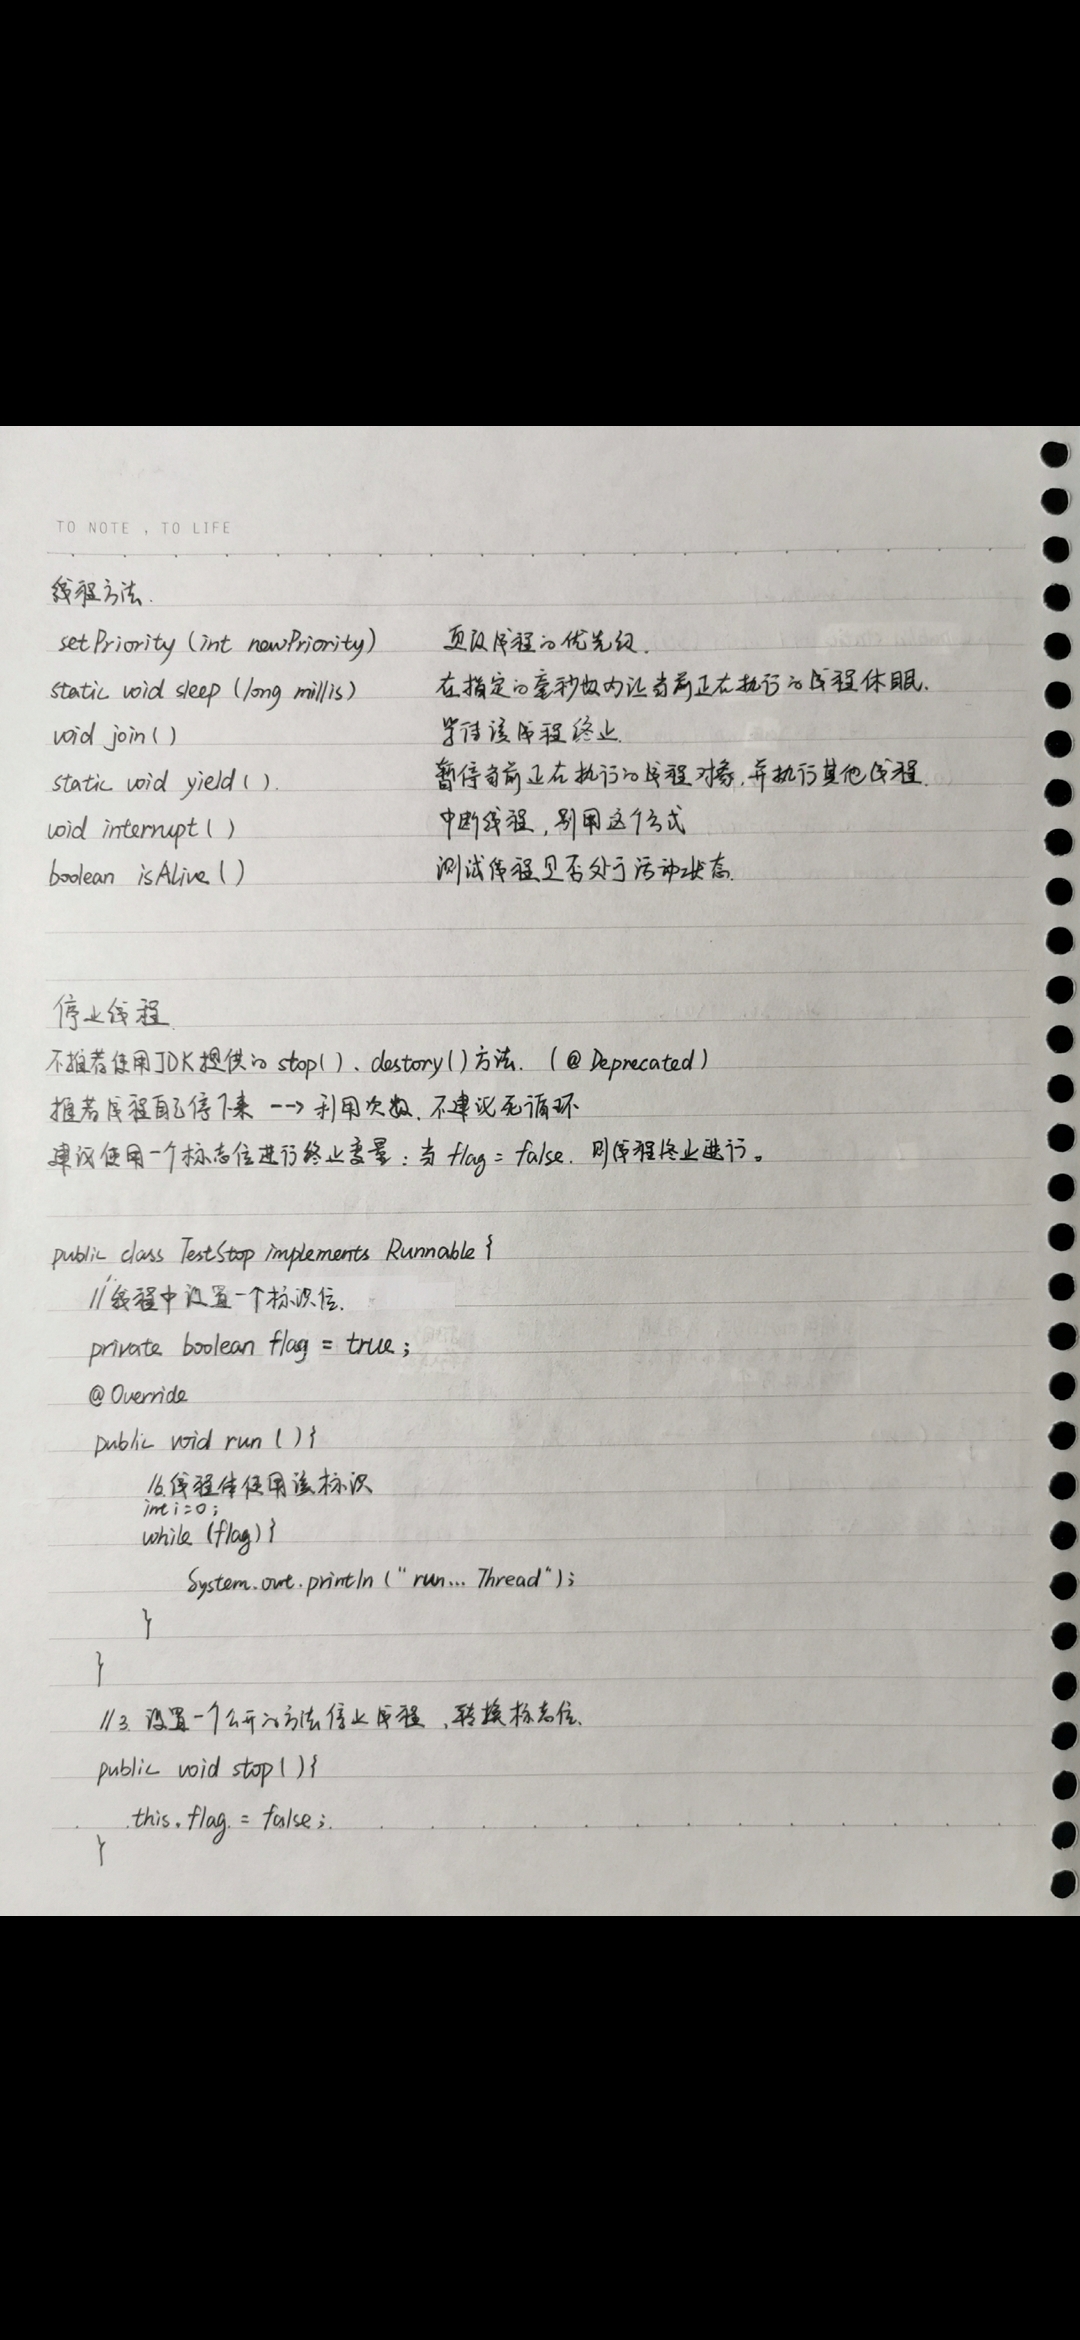 TO NOTE , TO LIFE
线程方法.
setPriority (int newPriority) 更改线程的优先级.
static void sleep (long millis) 在指定的毫秒数内让当前正在执行的线程休眠.
void join() 等待该线程终止.
static void yield(). 暂停当前正在执行的线程对象,并执行其他线程.
void interrupt() 中断线程,别用这个方式
boolean isAlive() 测试线程是否处于活动状态.
停止线程.
不推荐使用JDK提供的 stop()、destory()方法. (@Deprecated)
推荐线程自己停下来 --> 利用次数、不建议死循环
建议使用一个标志位进行终止变量:当 flag = false. 则线程终止进行。
public class TestStop implements Runnable {
// 线程中设置一个标识位.
private boolean flag = true;
@Override
public void run () {
// 线程体使用该标识
int i=0;
while (flag) {
System.out.println ("run... Thread");
}
}
//3. 设置一个公开的方法停止线程,转换标志位.
public void stop() {
this.flag = false;
}